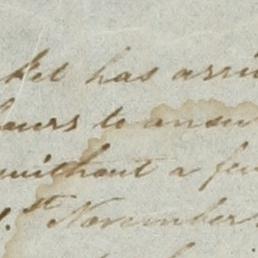 ket has arri
hours to answ
without a few
1.st November